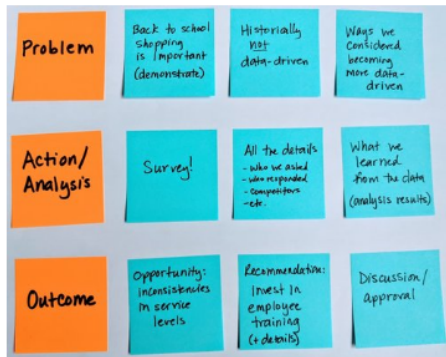 Problem
Back to school
shopping
is important
(demonstrate)
Historically
not
data-driven
Ways we
considered
becoming
more data-
driven
Action/
Analysis
Survey!
All the details
- Who we asked
- who responded
- competitors
- etc.
What we
learned
from the data
(analysis results)
Outcome
Opportunity:
inconsistencies
in service
levels
Recommendation:
Invest in
employee
training
(+ details)
Discussion/
approval